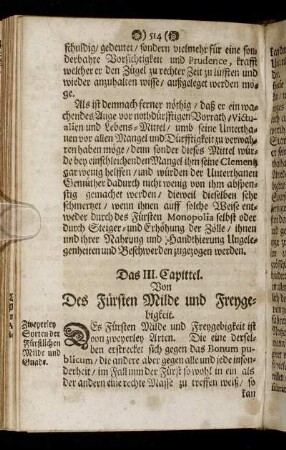 ) 514 (
schuldig/ gedeutet/ sondern vielmehr für eine son-
derbahre Vorsichtigkeit und Prudence, krafft
welcher er den Zügel zu rechter Zeit zu lüfften und
wieder anzuhalten wisse/ außgeleget werden mö-
ge.
Als ist demnach ferner nöthig/ daß er ein wa-
chendes Auge vor nothdürfftigen Vorrath/ Victu-
alien und Lebens-Mittel/ umb seine Untertha-
nen vor allen Mangel und Dürfftigkeit zu verwah-
ren haben möge/ denn sonder dieses Mittel wür-
de bey einschleichenden Mangel ihm seine Clementz
gar wenig helffen/ und würden der Unterthanen
Gemüther dadurch nicht wenig von ihm abspen-
stig gemachet werden/ dieweil dieselben sehr
schmertzet/ wenn ihnen auff solche Weise ent-
weder durch des Fürsten Monopolia selbst oder
durch Steiger- und Erhöhung der Zölle/ ihnen
und ihrer Nahrung und Handthierung Ungele-
genheiten und Beschwerden zugezogen werden.
Das III. Capittel.
Von
Des Fürsten Milde und Freyge-
bigkeit.
Zweyerley
Sorten der
Fürstlichen
Milde und
Gnade.
DEs Fürsten Milde und Freygebigkeit ist
von zweyerley Arten. Die eine dersel-
ben erstrecket sich gegen das Bonum pu-
blicum, die andere aber gegen alle und jede inson-
derheit/ im Fall nun der Fürst so wohl in ein als
der andern eine rechte Masse zu treffen weiß/ so
kan